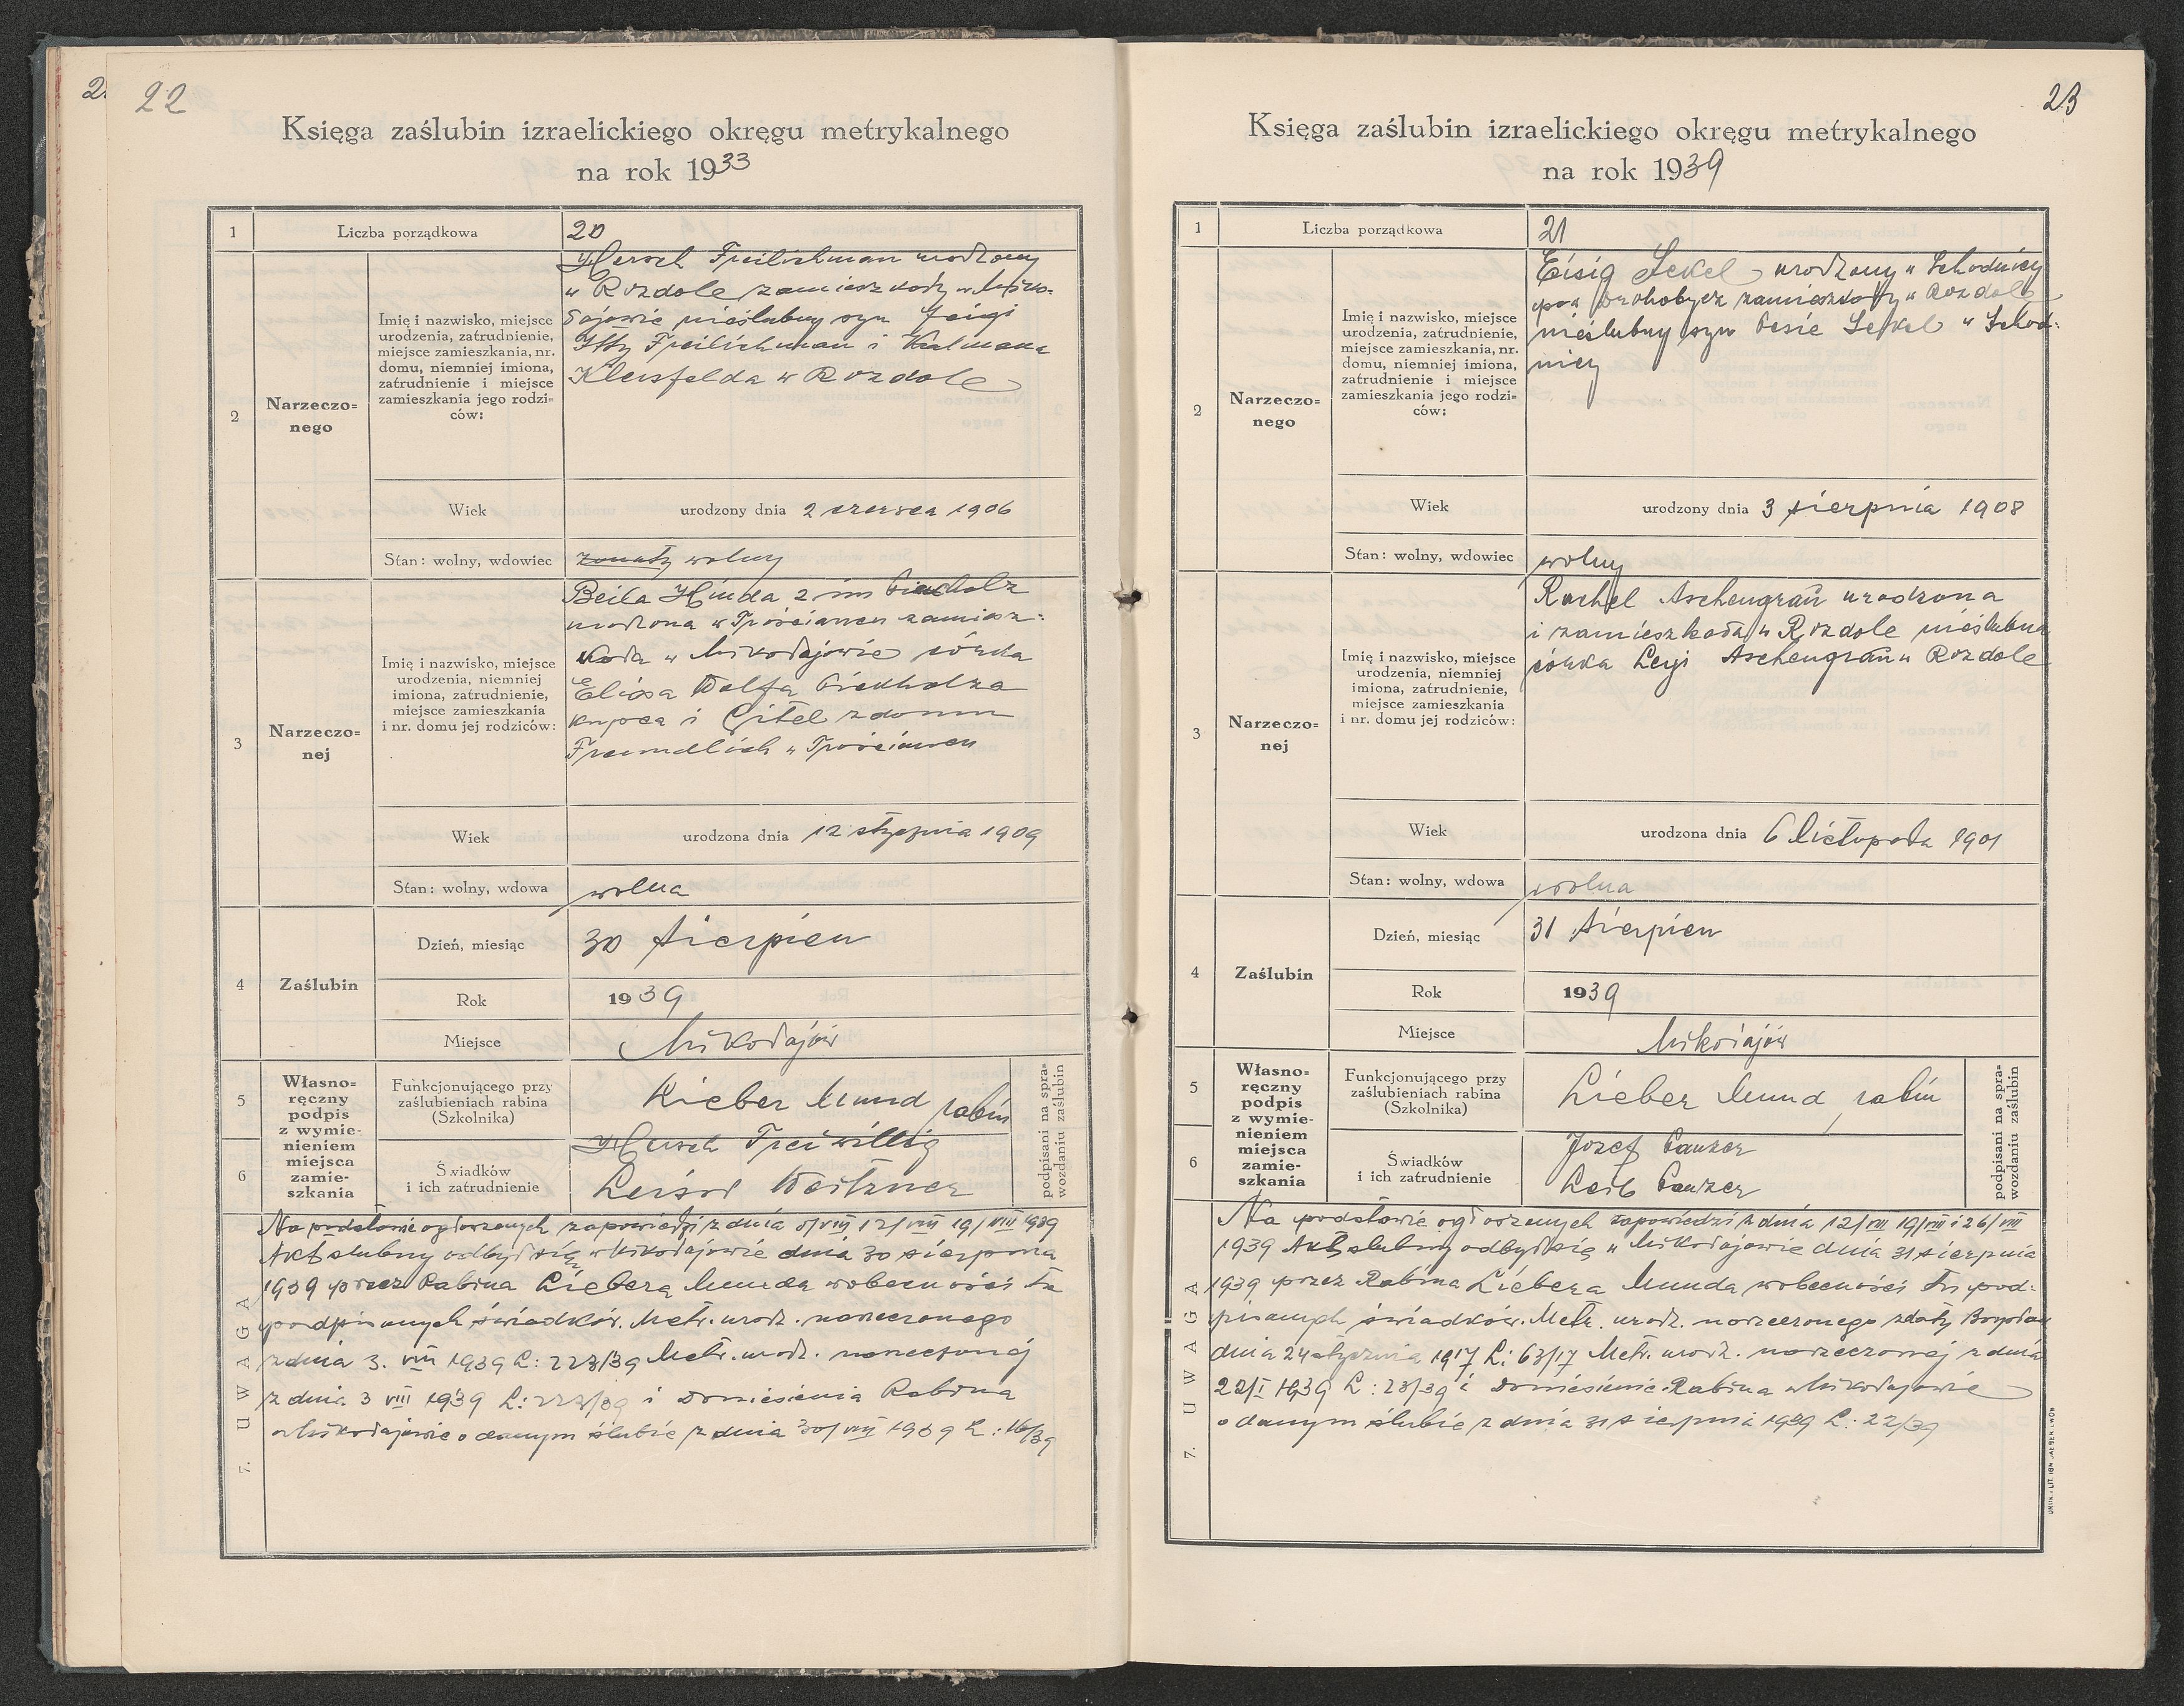 2.
22
Księga zaślubin izraelickiego okręgu metrykalnego
na rok 1933
1
Liczba porządkowa
20
2
Narzeczo=
nego
Imię i nazwisko, miejsce
urodzenia, zatrudnienie,
miejsce zamieszkania, nr.
domu, niemniej imiona,
zatrudnienie i miejsce
zamieszkania jego rodzi=
ców:
Hersch Freilichman urodzony
w Rozdole zamieszkały w Miko-
łajowie nieślubny syn Feigi
Itty Freilichman i Kalmana
Kleisfelda w Rozdole
Wiek
urodzony dnia 2 czerwca 1906
Stan: wolny, wdowiec
żonaty wolny
3
Narzeczo=
nej
Imię i nazwisko, miejsce
urodzenia, niemniej
imiona, zatrudnienie,
miejsce zamieszkania
i nr. domu jej rodziców:
Beila Hinda 2 im
urodzona w Trościańcu zamiesz-
kała w Mikołajowie córka
Eliasa Wolfa
kupca i Gitel z domu
Freundlich w Trościańcu
Wiek
urodzona dnia 12 stycznia 1909
Stan: wolny, wdowa
wolna
4
Zaślubin
Dzień, miesiąc
30 sierpien
Rok
1939
Miejsce
Mikołajów
5
6
Własno=
ręczny
podpis
z wymie-
nieniem
miejsca
zamie-
szkania
Funkcjonującego przy
zaślubieniach rabina
(Szkolnika)
Lieber Mund rabin
Świadków
i ich zatrudnienie
Hersch Freiwillig
Leisor Weitzner
podpisani na spra=
wozdaniu zaślubin
7. UWAGA
Na podstawie ogłoszonych zapowiedzi z dnia 5/VIII 12/VIII 19/VIII 1939
Akt slubny odbył się w Mikołajowie dnia 30 sierpnia
1939 przez Rabina Liebera Munda wobecności tu
podpisanych świadków. Metr. urodz. narzeczonego
z dnia 3. VIII 1939 L: 223/39 Metr. urodz. narzeczonej
z dnia 3 VIII 1939 L: 223/39 i doniesienia Rabina
w Mikołajowie o danym ślubie z dnia 30/VIII 1939 L: 16/39
23
Księga zaślubin izraelickiego okręgu metrykalnego
na rok 1939
1
Liczba porządkowa
21
2
Narzeczo=
nego
Imię i nazwisko, miejsce
urodzenia, zatrudnienie,
miejsce zamieszkania, nr.
domu, niemniej imiona,
zatrudnienie i miejsce
zamieszkania jego rodzi=
ców:
Eisig Sekel urodzony w Schodnicy
pow Drohobycz zamieszkały w Rozdole
nieślubny syn Pesie Sekel w Schod-
nicy
Wiek
urodzony dnia 3 sierpnia 1908
Stan: wolny, wdowiec
wolny
3
Narzeczo=
nej
Imię i nazwisko, miejsce
urodzenia, niemniej
imiona, zatrudnienie,
miejsce zamieszkania
i nr. domu jej rodziców:
Rachel Aschengrau urodzona
i zamieszkała w Rozdole nieślubna
córka Leji Aschengrau w Rozdole
Wiek
urodzona dnia 6 listopada 1901
Stan: wolny, wdowa
wolna
4
Zaślubin
Dzień, miesiąc
31 sierpien
Rok
1939
Miejsce
Mikołajów
5
6
Własno=
ręczny
podpis
z wymie-
nieniem
miejsca
zamie-
szkania
Funkcjonującego przy
zaślubieniach rabina
(Szkolnika)
Lieber Mund rabin
Świadków
i ich zatrudnienie
Jozef Panzer
Leib Panzer
podpisani na spra=
wozdaniu zaślubin
7. UWAGA
Na podstawie ogłoszonych zapowiedzi z dnia 12/VIII 19/VIII i 26/VIII
1939 Akt slubny odbył się w Mikołajowie dnia 31 sierpnia
1939 przez Rabina Liebera Munda wobecności tu pod-
pisanych świadków. Metr. urodz. narzeczonego
dnia 24 stycznia 1917 L: 63/17 Metr. urodz. narzeczonej z dnia
22/I 1939 L: 23/39 i doniesienie Rabina w Mikołajowie
o danym ślubie z dnia 31 sierpnia 1939 L: 22/39